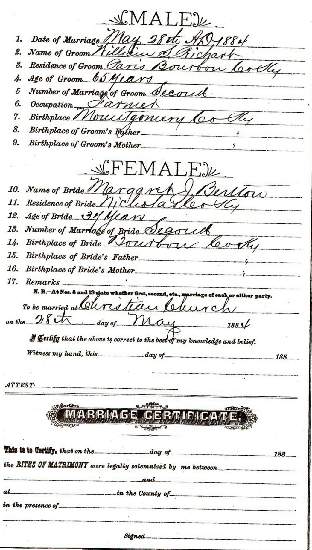 MALE
1. Date of Marriage May 28th A.D. 1884
2. Name of Groom William S. Richart
3. Residence of Groom Paris Bourbon Co Ky
4. Age of Groom 65 Years
5. Number of Marriage of Groom Second
6. Occupation Farmer
7. Birthplace Mountgomery Co Ky
8. Birthplace of Groom's Father
9. Birthplace of Groom's Mother "
FEMALE
10. Name of Bride Margaret J.
11. Residence of Bride Nicholas Co Ky
12. Age of Bride 34 Years
13. Number of Marriage of Bride Second
14. Birthplace of Bride Bourbon Co Ky
15. Birthplace of Bride's Father "
16. Birthplace of Bride's Mother "
17. Remarks
N. B.—At Nos. 5 and 13 state whether first, second, etc., marriage of each or either party.
To be married at Christian Church
on the 28th day of May 1884
I Certify that the above is correct to the best of my knowledge and belief.
Witness my hand, this day of 188
ATTEST:
MARRIAGE CERTIFICATE.
This is to Certify, that on the day of 188
the RITES OF MATRIMONY were legally solemnized by me between
and
at in the County of
in the presence of
Signed